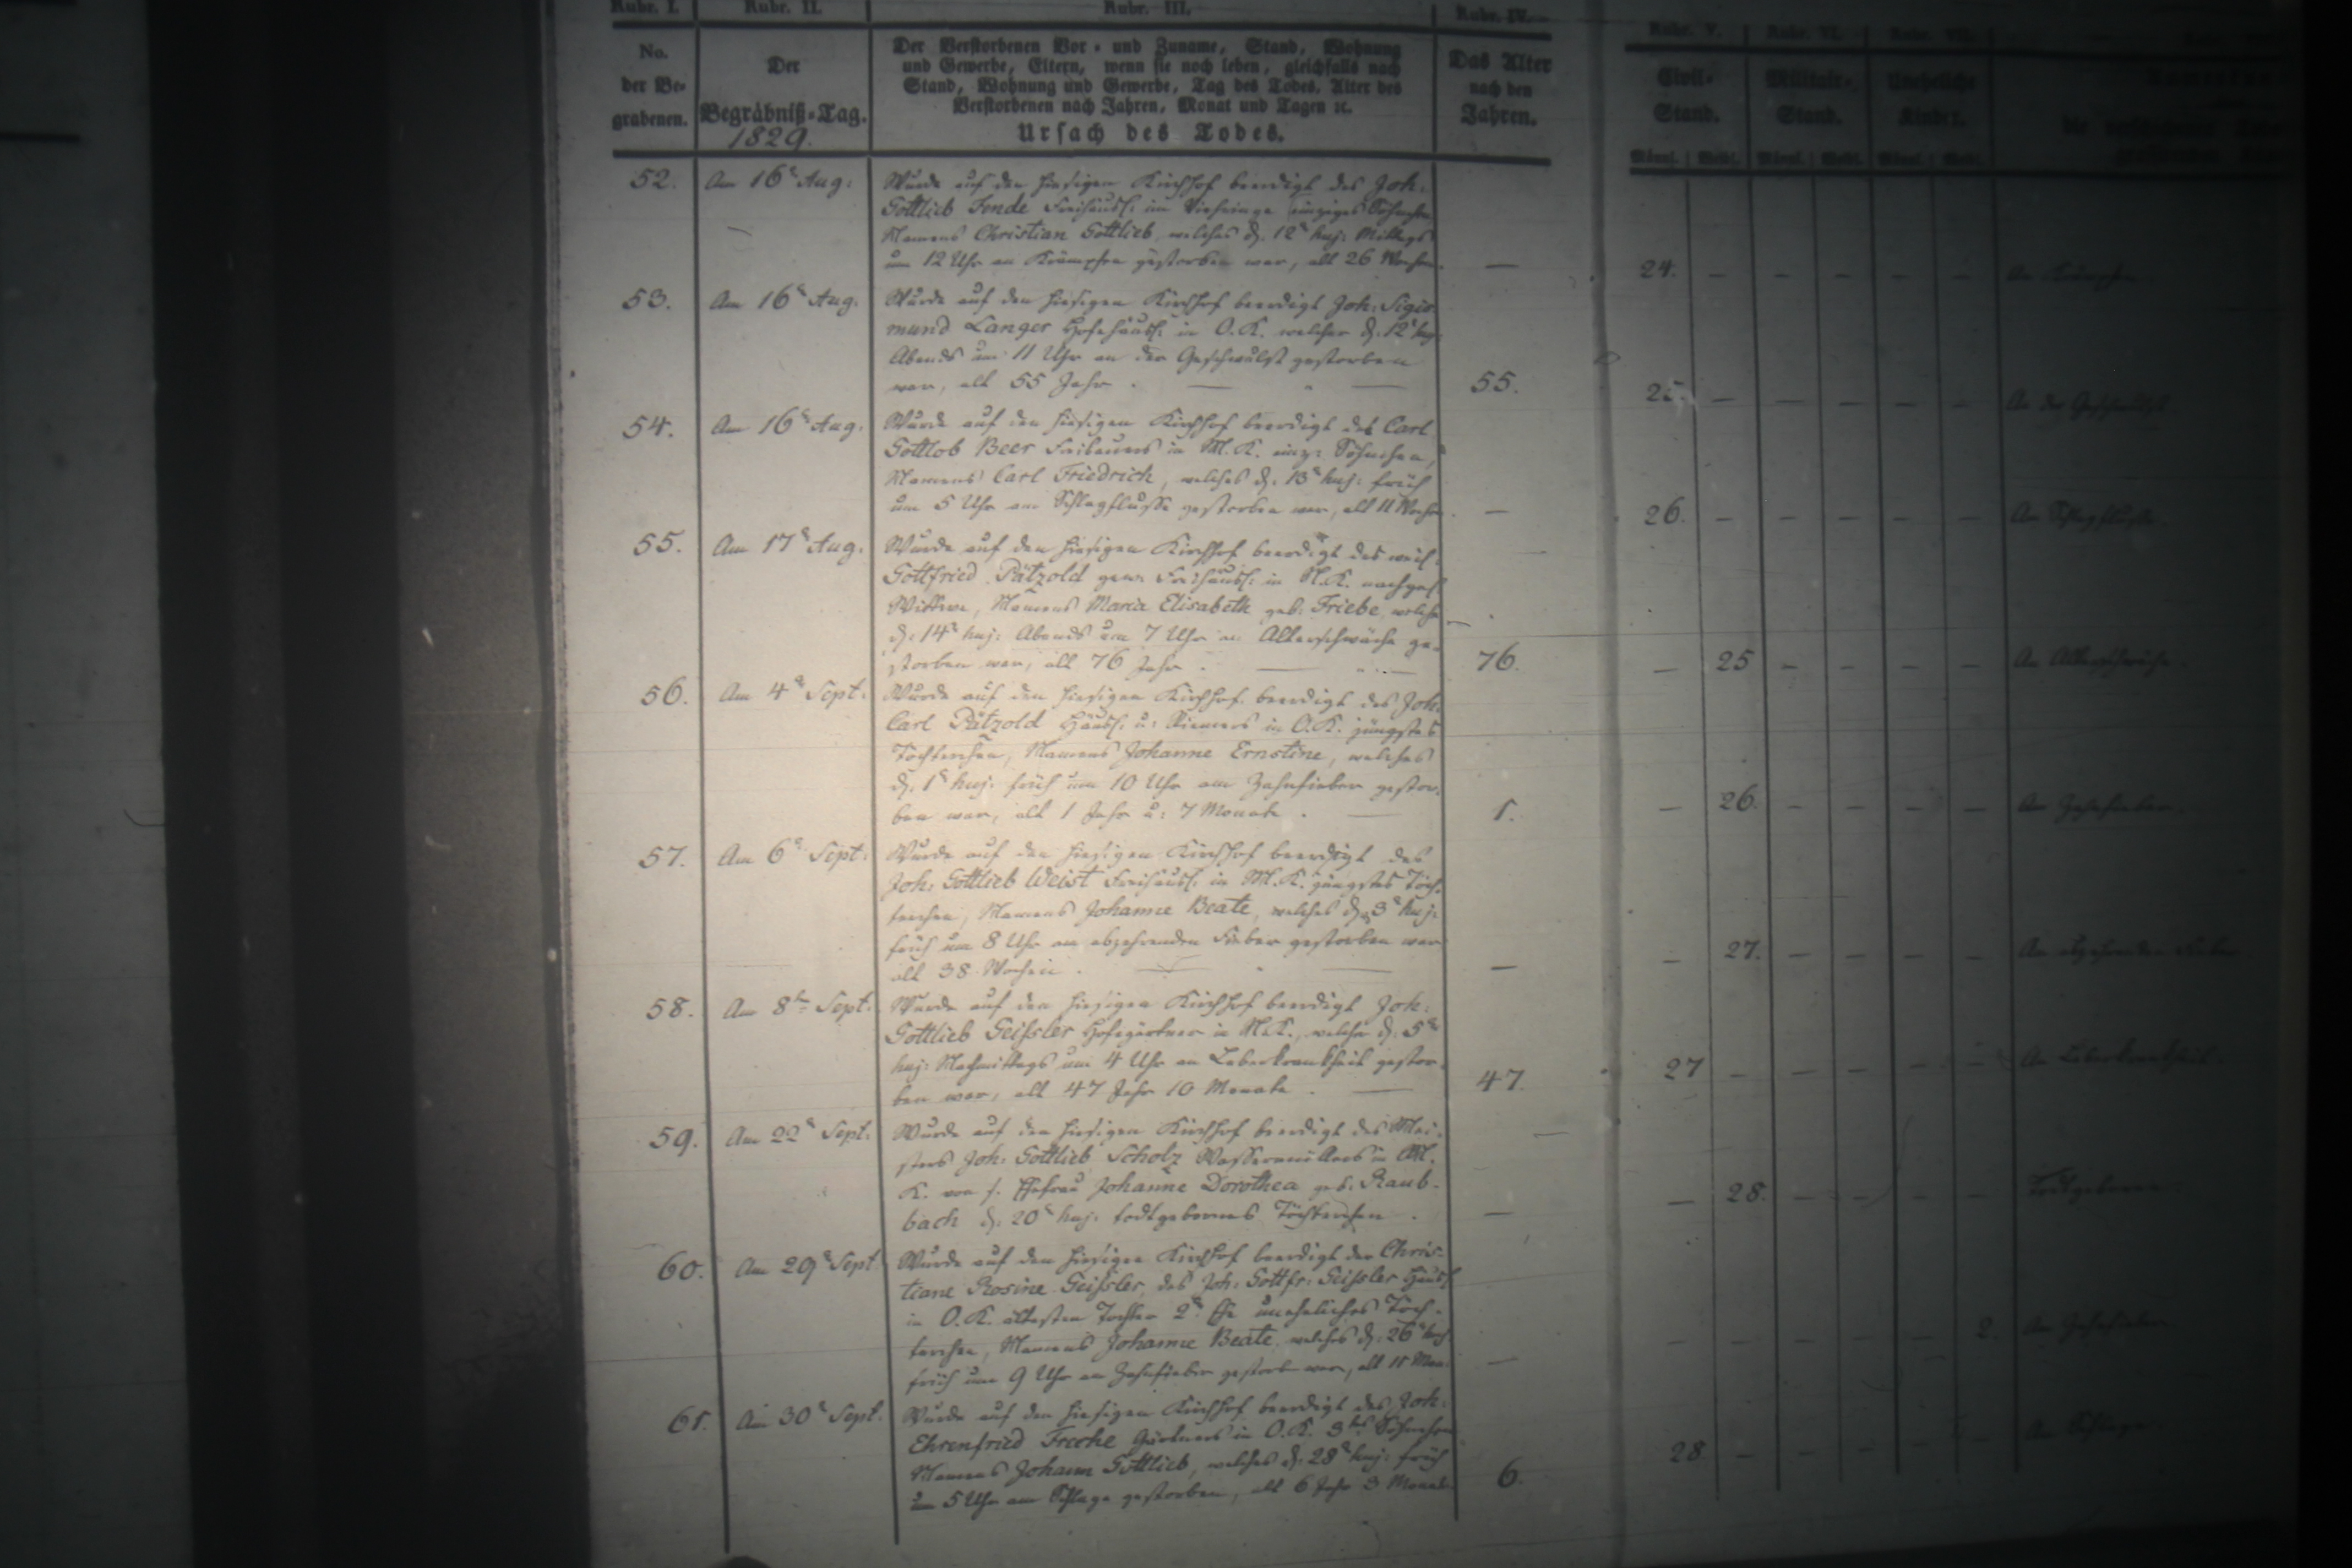 Rubr. I. Rubr. II. Rubr. III. Rubr. IV. Rubr. V. Rubr. VI. Rubr. VII.
No. der Be-grabenen.
Der Begräbniß-Tag.
1829.
Der Verstorbenen Vor- und Zuname, Stand, Wohnung
und Gewerbe, Eltern, wenn sie noch leben, gleichfalls nach
Stand, Wohnung und Gewerbe, Tag des Todes, Alter des
Verstorbenen nach Jahren, Monat und Tagen ꝛc.
Ursach des Todes.
Das Alter nach den Jahren.
Civil-Stand. Militair-Stand. Uneheliche Kinder.
Männl. Weibl. Männl. Weibl. Männl. Weibl.
52. Am 16t Aug: Wurde auf den hiesigen Kirchhof beerdigt des Joh:
Gottlieb Fende Freihäusl: im einziges Söhnchen
Namens Christian Gottlieb, welches d. 12t huj: Mittags
um 12 Uhr an Krämpfen gestorben war, alt 26 Wochen. — 24. — — — — — An Krämpfen
53. Am 16t Aug. Wurde auf den hiesigen Kirchhof beerdigt Joh: Sigis-
mund Langer Hofehäusl: in O. K. welcher d. 12t huj:
Abends um 11 Uhr an der Geschwulst gestorben
war, alt 55 Jahr. 55. 25. — — — — — An der Geschwulst.
54. Am 16t Aug. Wurde auf den hiesigen Kirchhof beerdigt des Carl
Gottlob Beer Freibauers in M. K. einz: Söhnchen,
Namens Carl Friedrich, welches d. 13t huj: früh
um 5 Uhr am Schlagflusse gestorben war, alt 11 Wochen. — 26. — — — — — Am Schlagflusse
55. Am 17t Aug. Wurde auf den hiesigen Kirchhof beerdigt des weil:
Gottfried Pätzold gew. Freihäusl: in N. K. nachgel:
Wittwe, Namens Maria Elisabeth geb. Friebe, welche
d. 14t huj: Abends um 7 Uhr an Altersschwäche ge-
storben war, alt 76 Jahr. 76. — 25 — — — — An Altersschwäche.
56. Am 4t Sept: Wurde auf den hiesigen Kirchhof beerdigt des Joh.
Carl Pätzold Häusl: u: Riemers in O. K. jüngstes
Töchterchen, Namens Johanne Ernstine, welches
d. 1t huj. früh um 10 Uhr am Zahnfieber gestor-
ben war, alt 1 Jahr u: 7 Monate. 1. — 26. — — — — Am Zahnfieber.
57. Am 6t Sept: Wurde auf den hiesigen Kirchhof beerdigt des
Joh: Gottlieb Weist Freihäusl. in M. K. jüngstes Töch-
terchen, Namens Johanne Beate, welches d. 3t huj:
früh um 8 Uhr am abzehrenden Fieber gestorben war
alt 38 Wochen. — — 27. — — — — Am abzehrenden Fieber
58. Am 8ten Sept: Wurde auf den hiesigen Kirchhof beerdigt Joh:
Gottlieb Geißler Hofegärtner in N. K., welcher d. 5t
huj: Nachmittags um 4 Uhr an Leberkrankheit gestor-
ben war, alt 47 Jahr 10 Monate. 47. 27 — — — — — An Leberkrankheit
59. Am 22t Sept: Wurde auf den hiesigen Kirchhof beerdigt des Mei-
sters Joh: Gottlieb Scholz Wassermüllers in M.
K. von s. Ehefrau Johanne Dorothea geb. Raub-
bach d. 20t huj. todtgebornes Töchterchen. — — 28. — — — — Todtgeboren
60. Am 29t Sept Wurde auf den hiesigen Kirchhof beerdigt der Chris-
tiane Rosine Geißler, des Joh: Gottfr: Geißler Häusl:
in O. K. ältesten Tochter 2t Ehe uneheliches Töch-
terchen, Namens Johanne Beate, welches d. 26t huj
früh um 9 Uhr an Zahnfieber gestorben war, alt 11 Mon: — — — — — — 2. Am Zahnfieber
61. Am 30t Sept. Wurde auf den hiesigen Kirchhof beerdigt des Joh:
Ehrenfried Gärtners in O. K. 3tes Söhnchen
Namens Johann Gottlieb, welches d. 28t huj: früh
um 5 Uhr am Schlage gestorben, alt 6 Jahr 3 Monate. 6. 28 — — — — — Am Schlage.